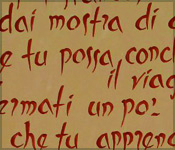 dai mostra di
e tu possa conc
il viag
ermati un po'
che tu appren